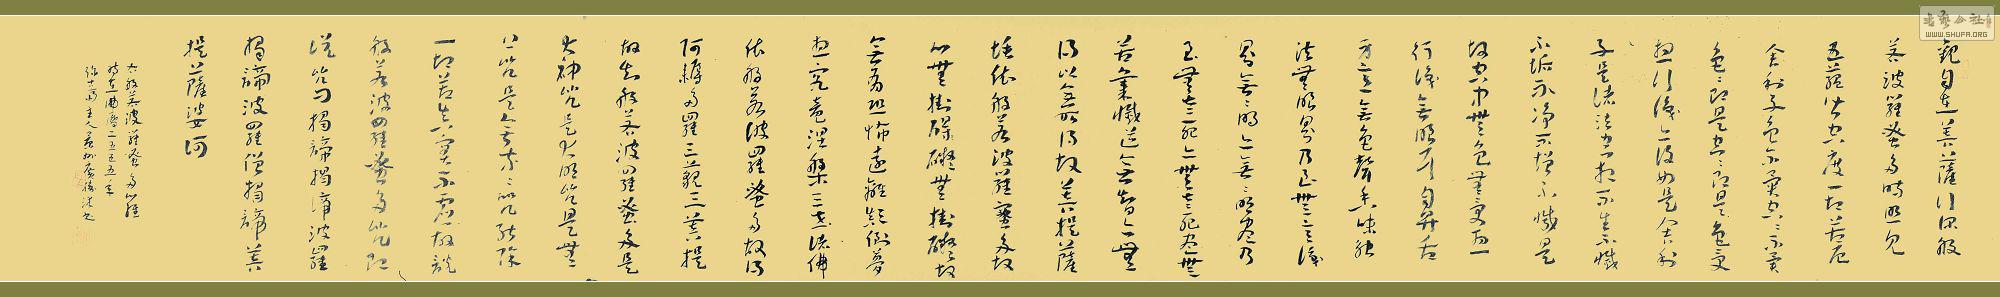 觀自在菩薩行深般
若波羅蜜多時照見
五蘊皆空度一切苦厄
舍利子色不異空空不異
色色即是空空即是色受
想行識亦復如是舍利
子是諸法空相不生不滅
不垢不淨不增不減是
故空中無色無受想
行識無眼耳鼻舌
身意無色聲香味觸
法無眼界乃至無意識
界無無明亦無無明盡乃
至無老死亦無老死盡無
苦集滅道無智亦無
得以無所得故菩提薩
埵依般若波羅蜜多故
心無掛礙無掛礙故
無有恐怖遠離顛倒夢
想究竟涅槃三世諸佛
依般若波羅蜜多故得
阿耨多羅三藐三菩提
故知般若波羅蜜多是
大神咒是大明咒是無
上咒是無等等咒能除
一切苦真實不虛故說
般若波羅蜜多咒即
說咒曰揭諦揭諦波羅
揭諦波羅僧揭諦菩
提薩婆訶
右般若波羅蜜多心經
時在二五五五年
WWW.SHUFA.ORG